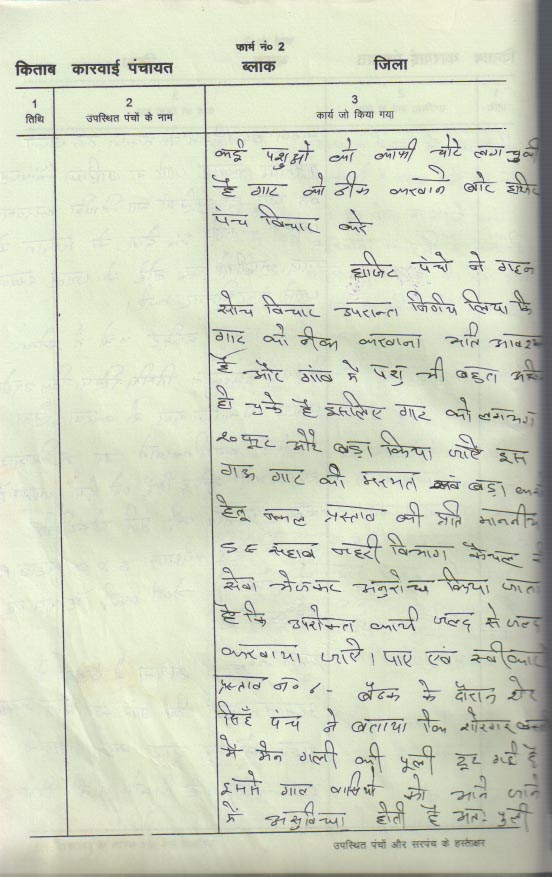 फार्म नं० 2
किताब कारवाई पंचायत ब्लाक जिला
1 2 3
तिथि उपस्थित पंचों के नाम कार्य जो किया गया
कई पशुओ को काफी चोटे लग चुकी
है गाट को ठीक करवाने बारे हाजिर
पंच विचार करे
हाजिर पंचो ने गहन
सोच विचार उपरान्त निर्णय लिया कि
गाट को ठीक करवाना अति आवश्यक
है और गांव मे पशु भी बहुत अधिक
हो चुके है इसलिए गाट को लगभग
२० फूट और बड़ा किया जाऐ इस
गऊ गाट की मरमत एवं बड़ा करने
हेतू नकल प्रस्ताव की प्रति माननीय
S E साहाब नहरी विभाग कैथल की
सेवा भेजकर अनुरोध किया जाता
है कि उपरोक्त कार्य जल्द से जल्द
करवाया जाऐ। पास एवं स्वीकार
प्रस्ताव नं० :- बैठक के दौरान शेर
सिंह पंच ने बताया कि शोरगर बस्ती
मे मेन गली की पूली टूट गई है
इससे गाव वासियो को आने जाने
में असुविधा होती है अतः पुली
उपस्थित पंचों और सरपंच के हस्ताक्षर